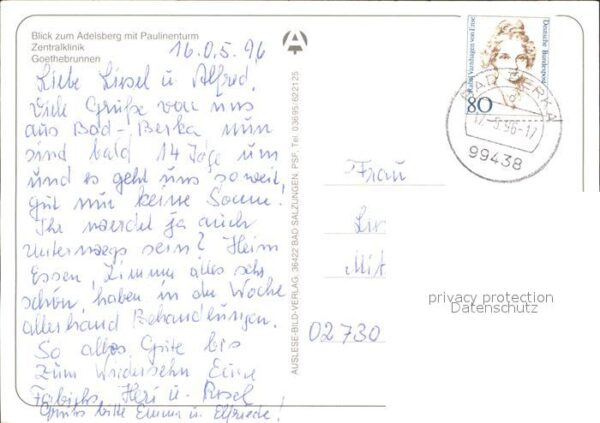 Blick zum Adelsberg mit Paulinenturm
Zentralklinik
Goethebrunnen
16.0.5.96
Liebe Liesel u. Alfred.
Viele Grüße von uns
aus Bad-Berka nun
sind bald 14 Tage um
und es geht uns soweit
gut nur keine Sonne.
Ihr werdet ja auch
unterwegs sein? Heim
Essen, Zimmer alles sehr
schön, haben in der Woche
allerhand Behandlungen.
So alles Gute bis
zum Wiedersehn Eure
u.
Grüße bitte Emma u. Elfriede!
AUSLESE-BILD-VERLAG, 36422 BAD SALZUNGEN, PSF, Tel. 036/95-60/21 25
Rahel Varnhagen von Ense
Deutsche Bundespost
80
BAD BERKA
17.-5.96-17
99438
Frau
Mit
02730
privacy protection
Datenschutz